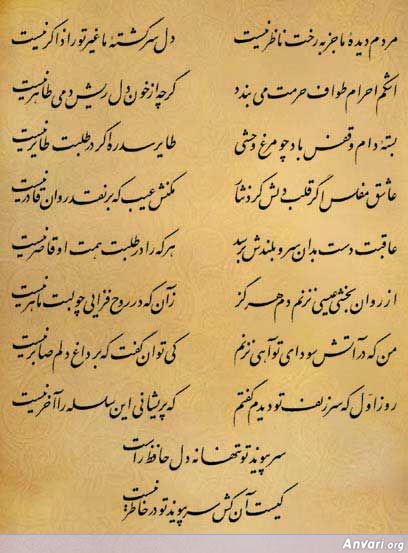 مردم دیدهٔ ما جز به رخت ناظر نیست دل سرگشتهٔ ما غیر تو را ذاکر نیست
اشکم احرام طواف حرمت می‌بندد گرچه از خون دل ریش دمی طاهر نیست
بستهٔ دام و قفس باد چو مرغ وحشی طایر سدره اگر در طلبت طایر نیست
عاشق مفلس اگر قلب دلش کرد نثار مکنش عیب که بر نقد روان قادر نیست
عاقبت دست بدان سرو بلندش برسد هر که را در طلبت همت او قاصر نیست
از روان بخشی عیسی نزنم دم هرگز زآن که در روح فزایی چو لبت ماهر نیست
من که در آتش سودای تو آهی نزنم کی توان گفت که بر داغ دلم صابر نیست
روز اول که سر زلف تو دیدم گفتم که پریشانی این سلسله را آخر نیست
سر پیوند تو تنها نه دل حافظ راست
کیست آن کش سر پیوند تو در خاطر نیست
Anvari.org